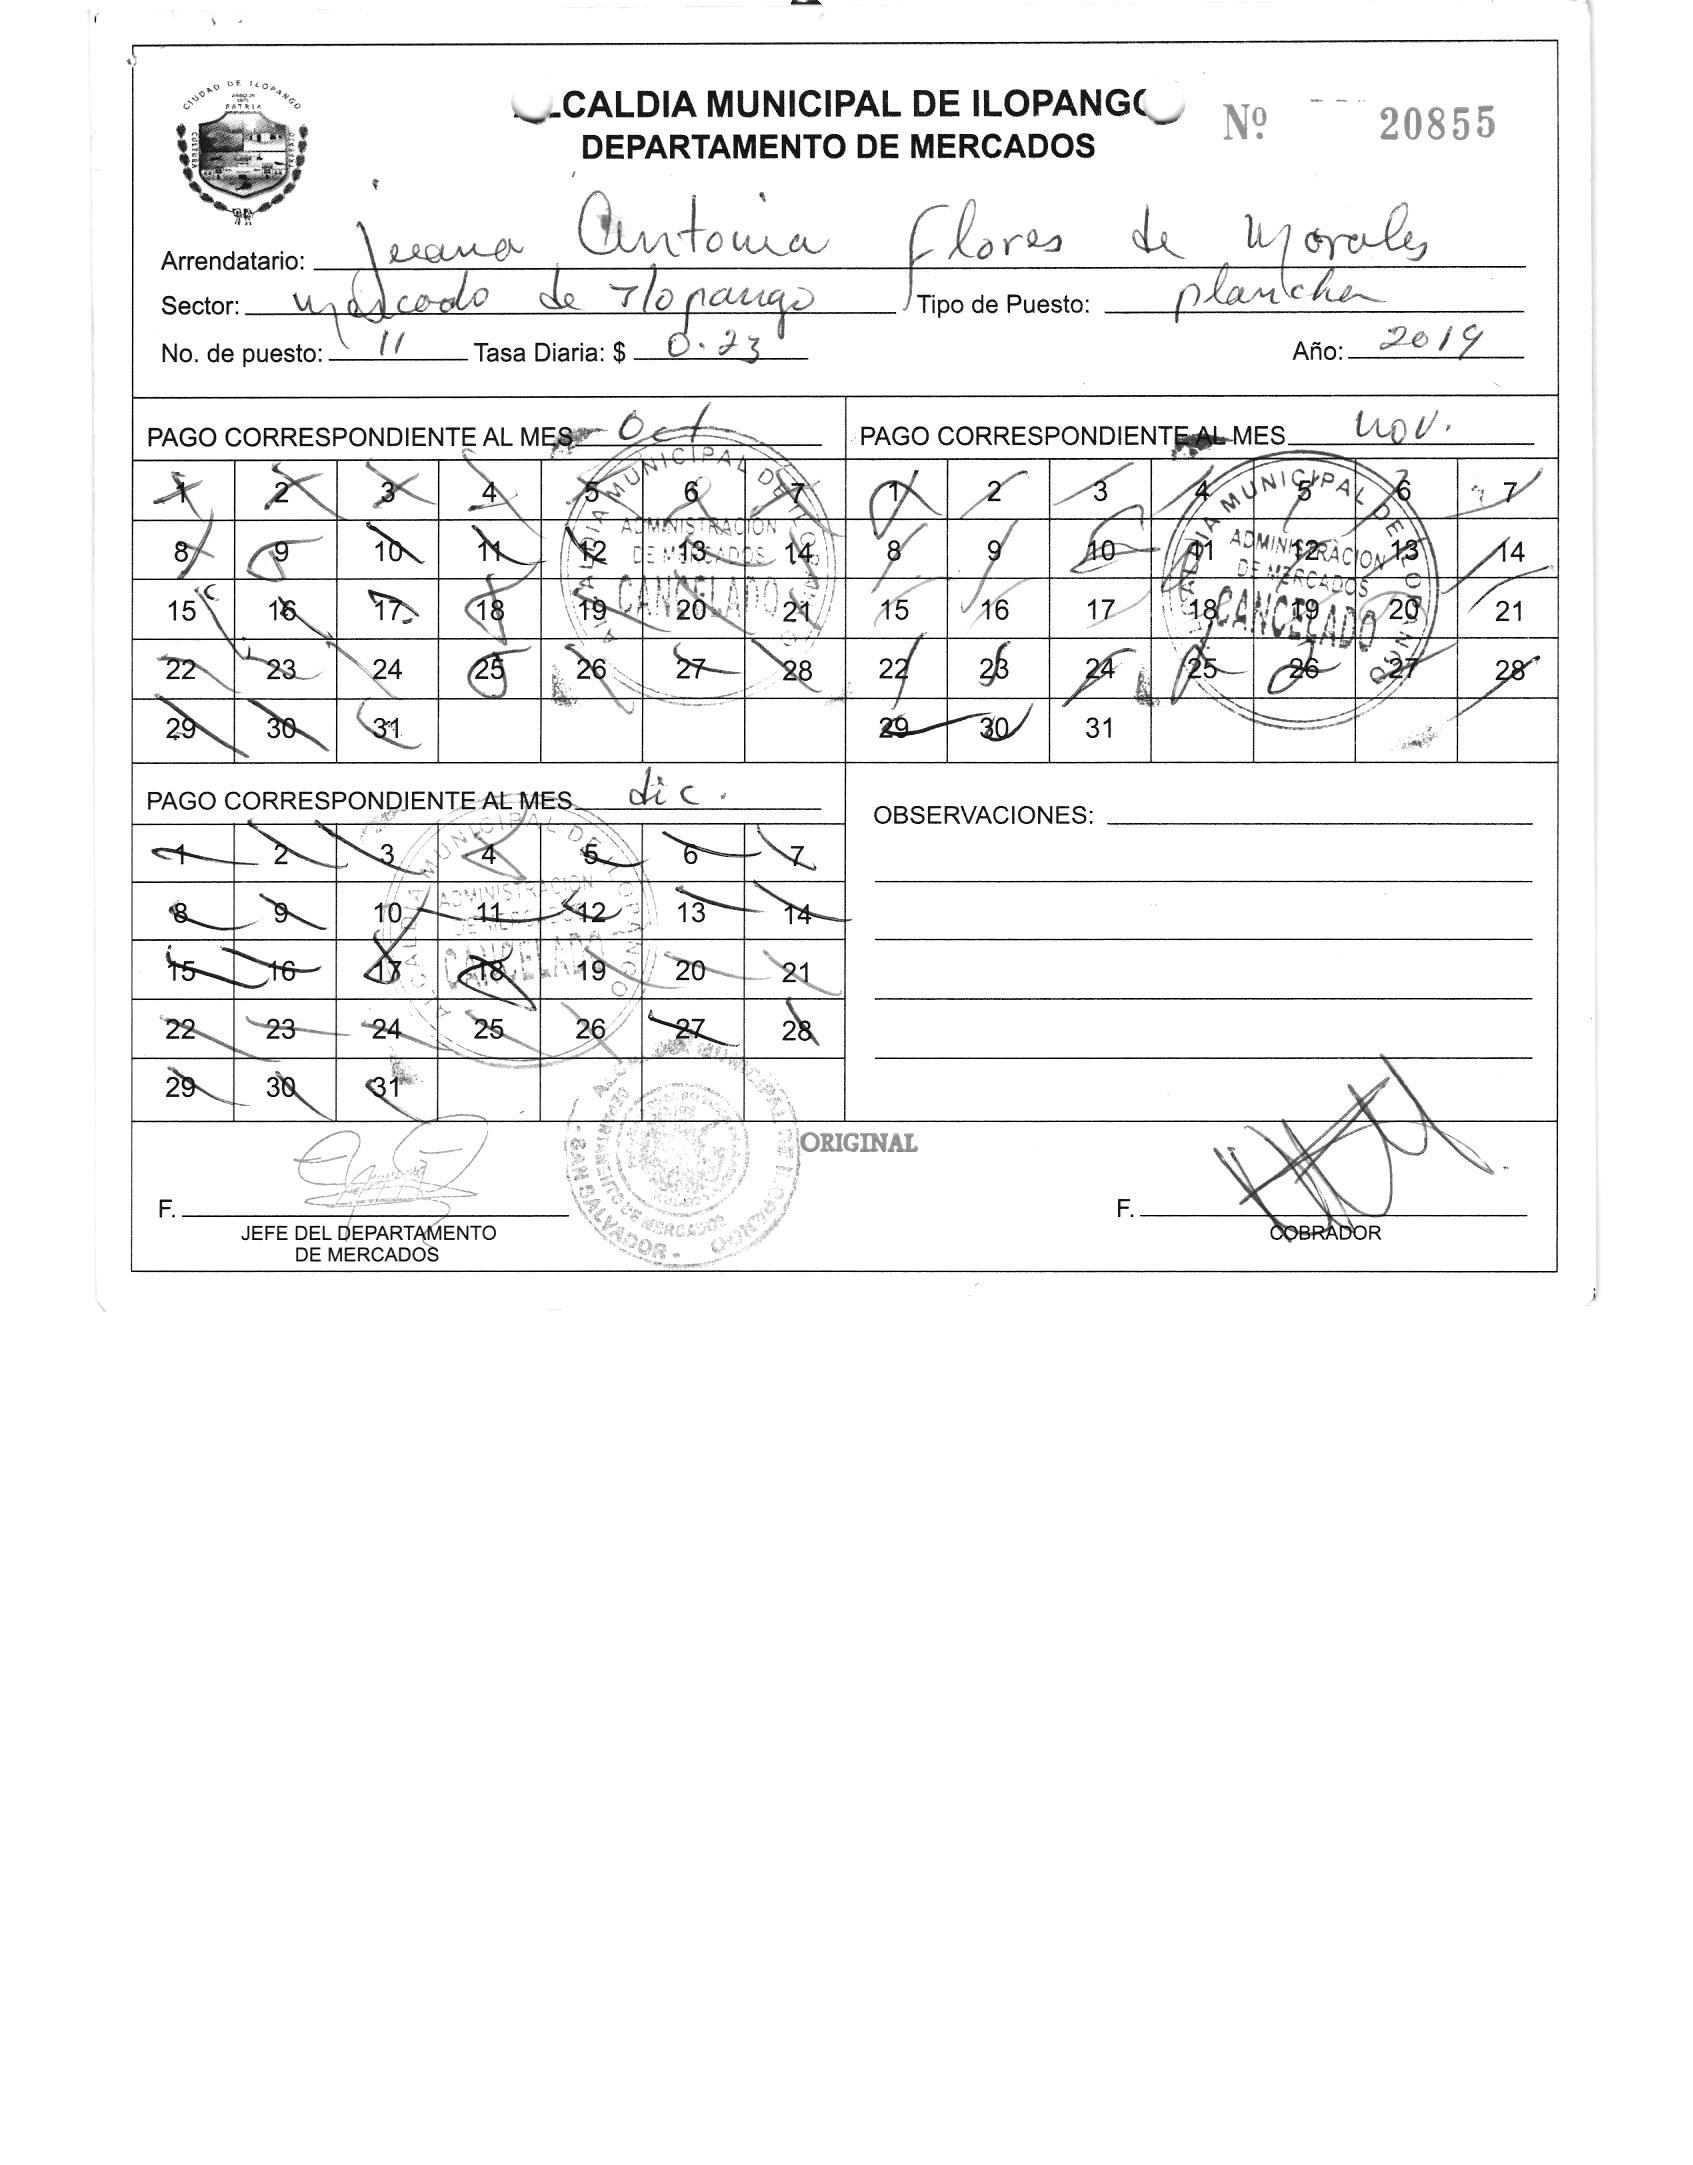 CIUDAD DE ILOPANGO
PATRIA
CULTURA
LCALDIA MUNICIPAL DE ILOPANGO
Nº 20855
DEPARTAMENTO DE MERCADOS
Arrendatario: Juana Antonia Flores de Morales
Sector: Mercado de Ilopango Tipo de Puesto: plancha
No. de puesto: 11 Tasa Diaria: $ 0.23 Año: 2019
PAGO CORRESPONDIENTE AL MES Oct
1 2 3 4 5 6 7
8 9 10 11 12 13 14
15 16 17 18 19 20 21
22 23 24 25 26 27 28
29 30 31
ALCALDIA MUNICIPAL DE ILOPANGO
ADMINISTRACION
DE MERCADOS
CANCELADO
PAGO CORRESPONDIENTE AL MES nov.
1 2 3 4 5 6 7
8 9 10 11 12 13 14
15 16 17 18 19 20 21
22 23 24 25 26 27 28
29 30 31
ALCALDIA MUNICIPAL DE ILOPANGO
ADMINISTRACION
DE MERCADOS
CANCELADO
PAGO CORRESPONDIENTE AL MES dic.
1 2 3 4 5 6 7
8 9 10 11 12 13 14
15 16 17 18 19 20 21
22 23 24 25 26 27 28
29 30 31
ALCALDIA MUNICIPAL DE ILOPANGO
ADMINISTRACION
DE MERCADOS
CANCELADO
OBSERVACIONES:
ALCALDIA MUNICIPAL DE ILOPANGO
DEPARTAMENTO DE MERCADOS
- SAN SALVADOR -
ORIGINAL
F.
JEFE DEL DEPARTAMENTO
DE MERCADOS
F.
COBRADOR